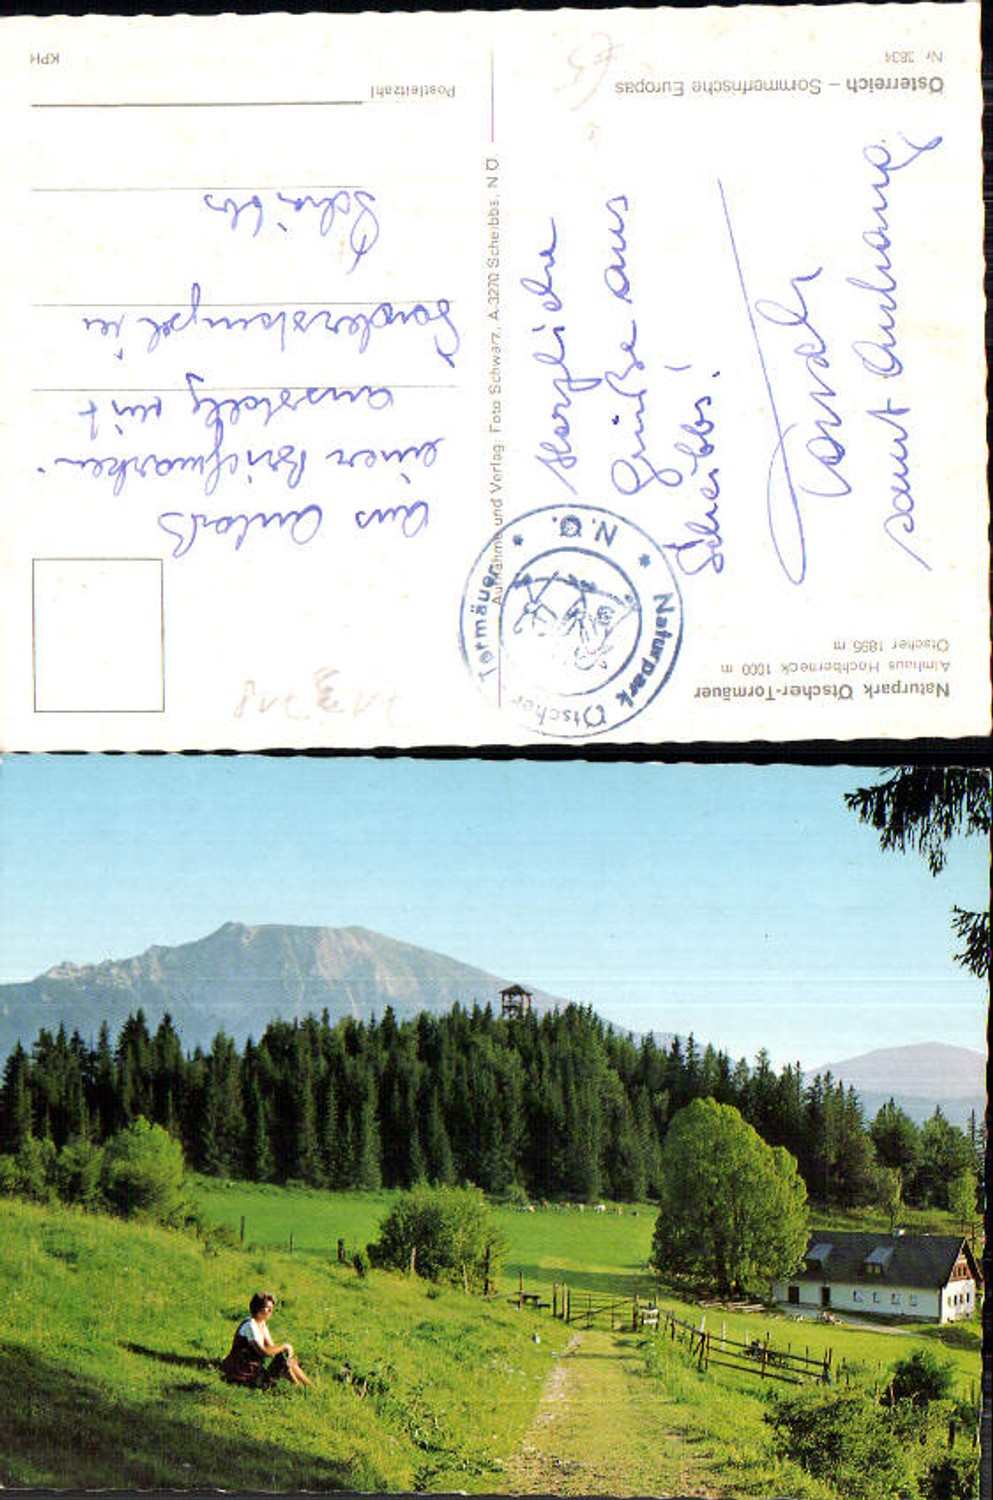 Naturpark Ötscher-Tormäuer
Almhaus Hochbärneck 1000 m
Ötscher 1895 m
Herzliche
Grüße aus
Scheibbs!
samt Anhang
Österreich – Sommerfrische Europas
Nr. 3634
Naturpark Ötscher - Tormäuer
* N.Ö. *
Aufnahme und Verlag: Foto Schwarz, A-3270 Scheibbs, N.Ö.
aus Anlaß
einer Briefmarken-
ausstellg mit
Sonderstempel in
Scheibbs
Postleitzahl
KPH